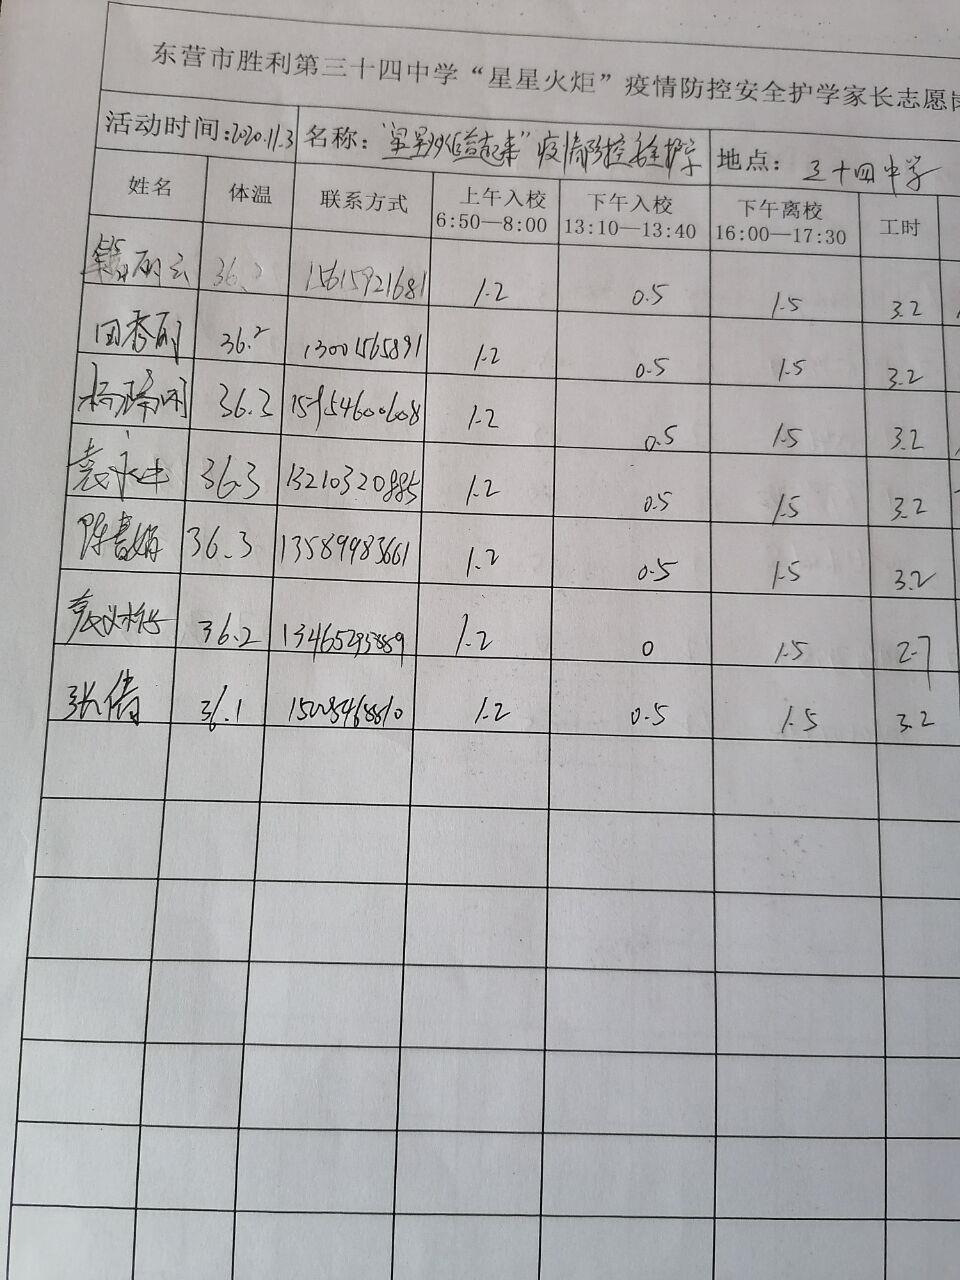 东营市胜利第三十四中学“星星火炬”疫情防控安全护学家长志愿岗
活动时间:2020.11.3 名称: 疫情防控安全护学 地点: 三十四中学
姓名 体温 联系方式 上午入校 6:50—8:00 下午入校 13:10—13:40 下午离校 16:00—17:30 工时
丽云 36.2 15615921681 1.2 0.5 1.5 3.2
田秀丽 36.2 13001565891 1.2 0.5 1.5 3.2
杨 36.3 15954600608 1.2 0.5 1.5 3.2
袁永中 36.3 13210320885 1.2 0.5 1.5 3.2
陈 娟 36.3 13589983661 1.2 0.5 1.5 3.2
36.2 13465293889 1.2 0 1.5 2.7
张倩 36.1 1.2 0.5 1.5 3.2